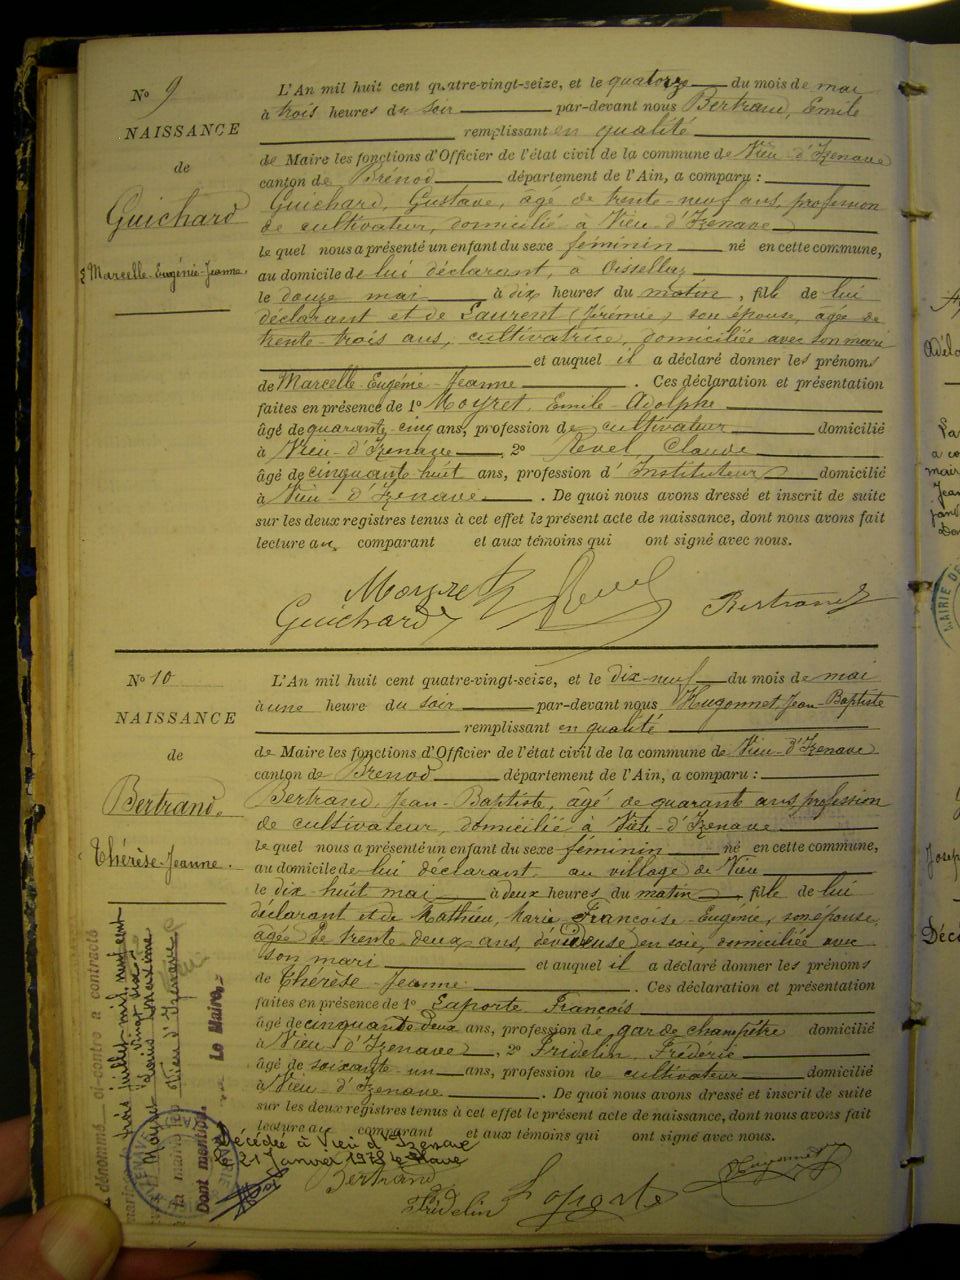 No 9
NAISSANCE
de
Guichard
Marcelle-Eugénie-Jeanne.
L'An mil huit cent quatre-vingt-seize, et le quatorze du mois de mai
à trois heures du soir par-devant nous Bertrand, Emile
remplissant en qualité
de Maire les fonctions d'Officier de l'état civil de la commune de Vieu-d'Izenave
canton de Brénod département de l'Ain, a comparu :
Guichard, Gustave, âgé de trente-neuf ans, profession
de cultivateur, domicilié à Vieu-d'Izenave
lequel nous a présenté un enfant du sexe féminin né en cette commune,
au domicile de lui déclarant, à Oisselaz
le douze mai à dix heures du matin, fille de lui
déclarant et de Laurent (Jérémie) son épouse, âgée de
trente-trois ans, cultivatrice, domiciliée avec son mari
et auquel il a déclaré donner les prénoms
de Marcelle-Eugénie-Jeanne. Ces déclaration et présentation
faites en présence de 1o Moyret, Emile-Adolphe
âgé de quarante-cinq ans, profession de cultivateur domicilié
à Vieu-d'Izenave, 2o Revel Claude
âgé de cinquante huit ans, profession d'Instituteur domicilié
à Vieu-d'Izenave. De quoi nous avons dressé et inscrit de suite
sur les deux registres tenus à cet effet le présent acte de naissance, dont nous avons fait
lecture au comparant et aux témoins qui ont signé avec nous.
Moyret Revel
Guichard Bertrand
No 10
NAISSANCE
de
Bertrand
Thérèse-Jeanne.
L'An mil huit cent quatre-vingt-seize, et le dix-neuf du mois de mai
à une heure du soir par-devant nous Hugonnet, Jean-Baptiste
remplissant en qualité
de Maire les fonctions d'Officier de l'état civil de la commune de Vieu-d'Izenave
canton de Brénod département de l'Ain, a comparu :
Bertrand, Jean-Baptiste, âgé de quarante ans, profession
de cultivateur, domicilié à Vieu-d'Izenave
lequel nous a présenté un enfant du sexe féminin né en cette commune,
au domicile de lui déclarant, au village de Vieu
le dix huit mai à deux heures du matin, fille de lui
déclarant et de Mathieu, Marie Françoise-Eugénie, son épouse,
âgée de trente deux ans, dévideuse en soie, domiciliée avec
son mari et auquel il a déclaré donner les prénoms
de Thérèse-Jeanne. Ces déclaration et présentation
faites en présence de 1o Laporte François
âgé de cinquante deux ans, profession de garde champêtre domicilié
à Vieu d'Izenave, 2o Fridelin, Frédéric
âgé de soixante-un ans, profession de cultivateur domicilié
à Vieu-d'Izenave. De quoi nous avons dressé et inscrit de suite
sur les deux registres tenus à cet effet le présent acte de naissance, dont nous avons fait
lecture au comparant et aux témoins qui ont signé avec nous.
Décédée à Vieu d'Izenave
21 Janvier 1978 le Maire
Bertrand
Fridelin Laporte Hugonnet
dénommé ci-contre a contracté
trois juillet mil neuf cent
vingt six
Louis Maxime
la mairie Vieu d'Izenave
Dont mention. Le Maire.
MAIRIE DE